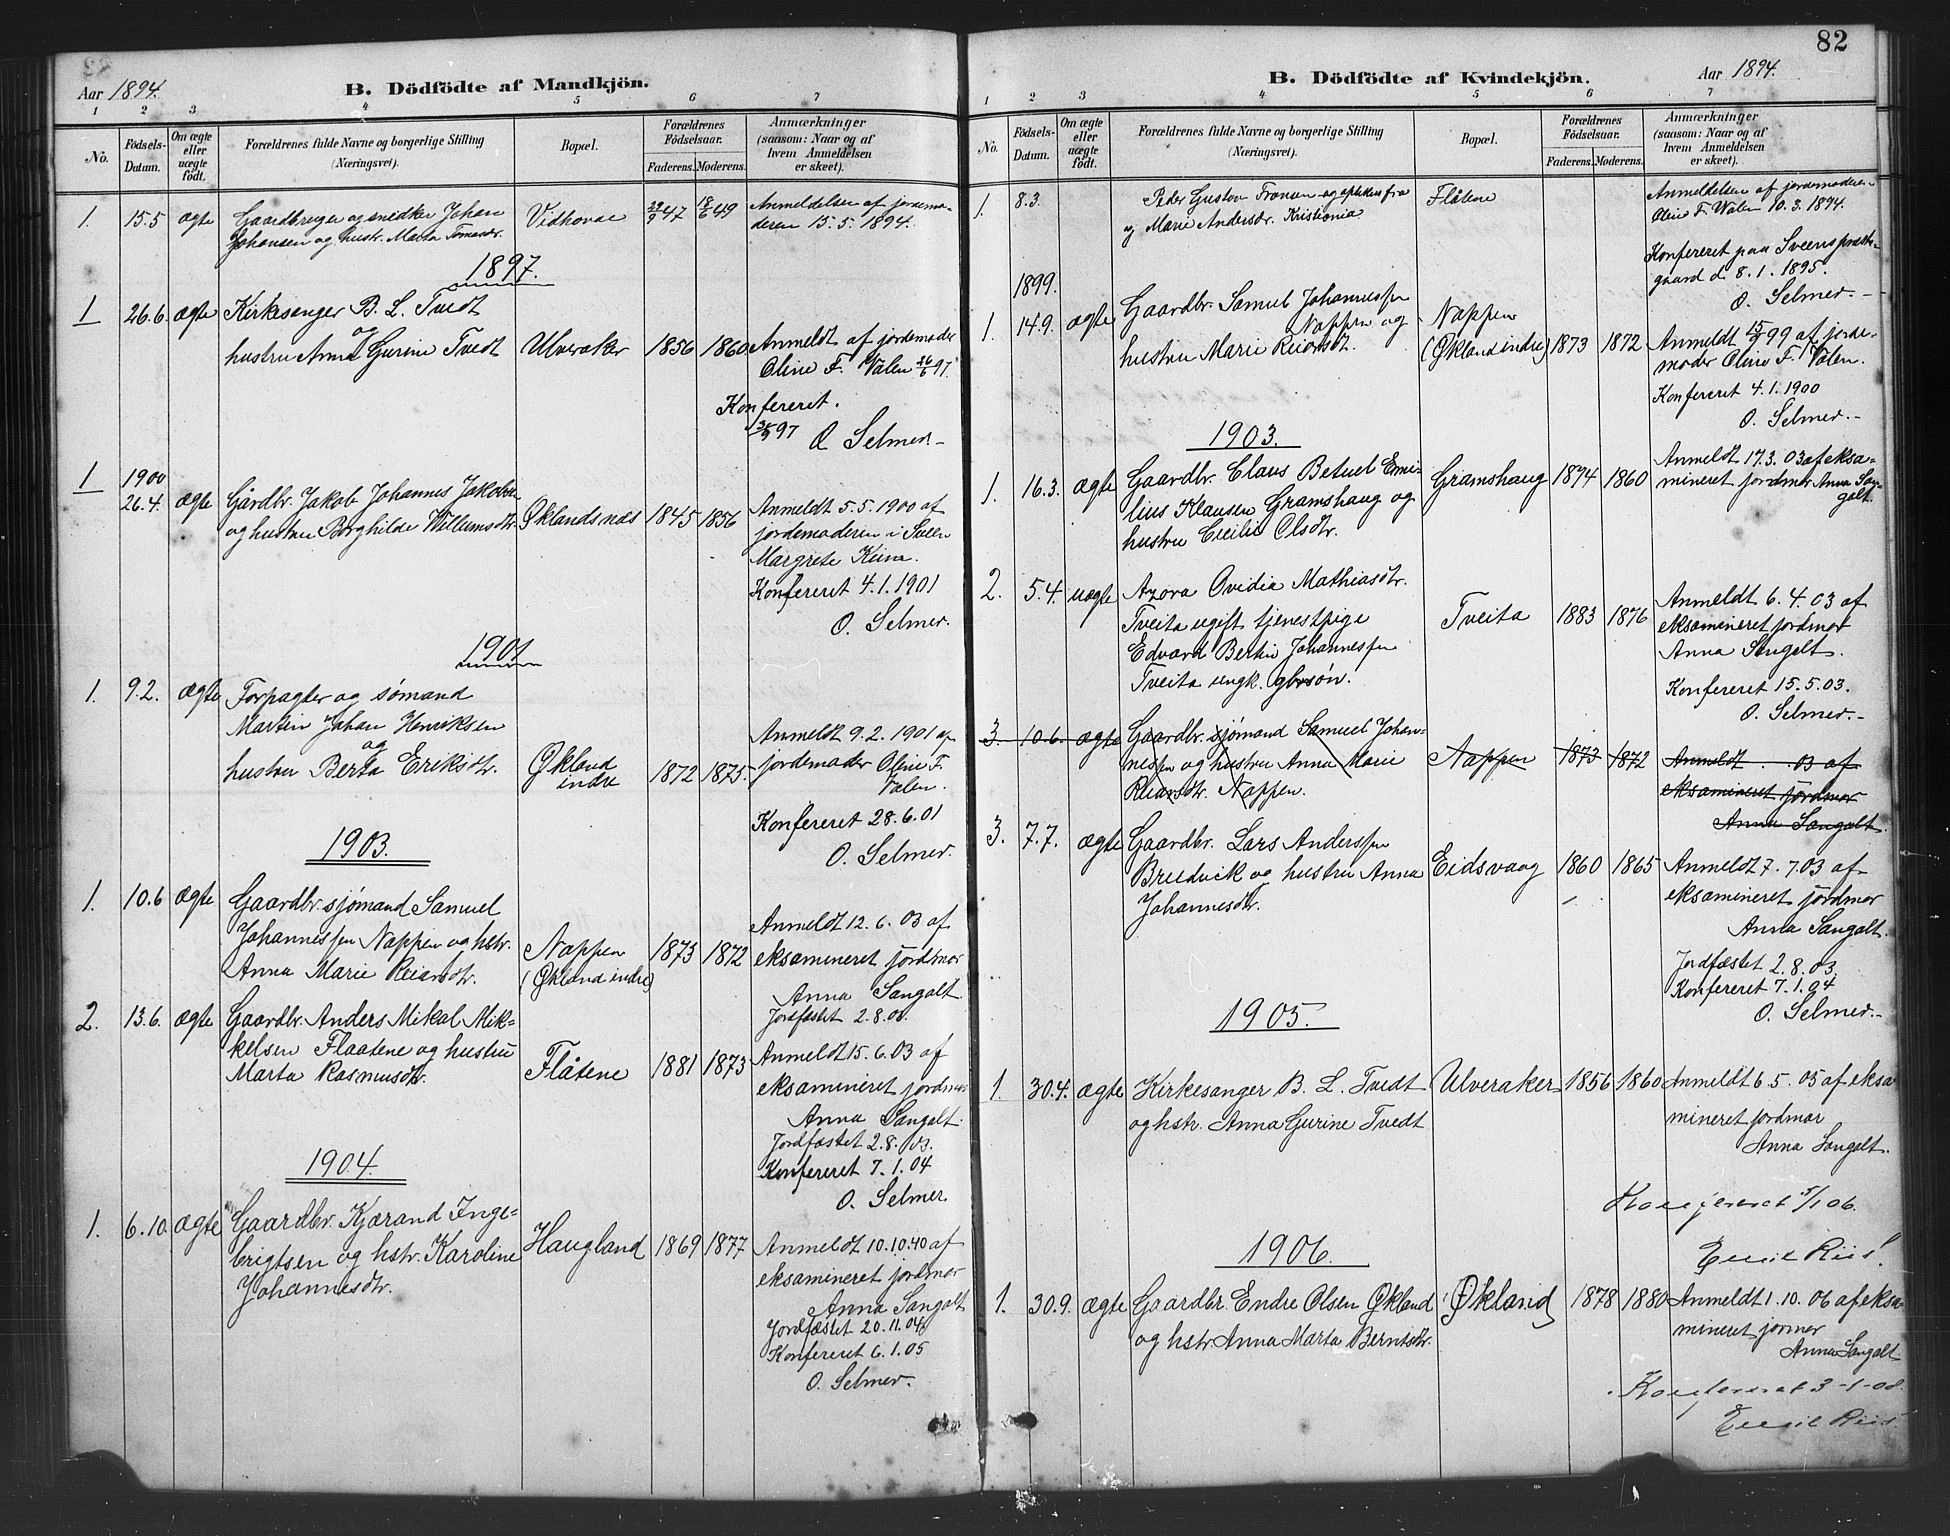 Aar 1894.
B. Dödfödte af Mandkjön.
1 2 3 4 5 6 7
No.
Födsels-
Datum.
Om ægte
eller
uægte
födt.
Forældrenes fulde Navne og borgerlige Stilling
(Næringsvei).
Bopæl.
Forældrenes
Födselsaar.
Faderens. Moderens.
Anmærkninger
(saasom: Naar og af
hvem Anmeldelsen
er skeet).
1. 15.5 ægte Gaardbruger og snedker Johan
Johansen og hustr. Marta Tomasdr.
47 49
Anmeldelsen af jordemo-
deren 15.5.1894.
1897.
1 26.6. ægte Kirkesanger B. L. Tvedt
og
hustru Anna Gurine Tvedt Ulveraker 1856 1860
Anmeldt af jordemoder
Oline F. Valen 26/6 97.
Konfereret.
97
O Selmer.-
1 1900
26.4. ægte Gårdbr. Jakob Johannes Jakobsen
og hustru Borghilde Willumsdtr. Øklandsnæs 1845 1856
Anmeldt 5.5.1900 af
jordemoderen i Sveen
Margrete
Konfereret 4.1.1901
O. Selmer.
1901
1. 9.2. ægte Forpagter og sømand
Martin Johan Henriksen
og
hustru Berta Eriksdtr. Økland
indre 1872 1875.
Anmeldt 9.2.1901 af
jordemoder Oline F.
Valen.
Konfereret 28.6.01
O. Selmer.
1903.
1. 10.6 ægte Gaardbr. sjømand Samuel
Johannessen Nappen og hstr.
Anna Marie Reiarsdtr.
Nappen
(Økland indre) 1873 1872
Anmeldt 12.6.03 af
eksamineret jordmor
Anna Sangalt.
Jordfæstet 2.8.03.
2. 13.6. ægte Gaardbr. Anders Mikal Mik-
kelsen Flaatene og hustru
Marta Rasmusdtr.
Flåtene 1881 1873
Anmeldt 15.6.03 af
eksamineret jordmor
Anna Sangalt.
Jordfæstet 2.8.03.
Konfereret 7.1.04
O. Selmer
1904.
1. 6.10. ægte Gaardbr. Kjærand Inge-
brigtsen og hstr. Karoline
Johannesdtr.
Haugland 1869 1877
Anmeldt 10.10.40 af
eksamineret jordmor
Anna Sangalt
Jordfæstet 20.11.04
Konfereret 6.1.05
O. Selmer.
82
B. Dödfödte af Kvindekjön.
Aar 1894.
1 2 3 4 5 6 7
No.
Födsels-
Datum.
Om ægte
eller
uægte
födt.
Forældrenes fulde Navne og borgerlige Stilling
(Næringsvei).
Bopæl.
Forældrenes
Födselsaar.
Faderens. Moderens.
Anmærkninger
(saasom: Naar og af
hvem Anmeldelsen
er skeet).
1. 8.3. Peder Gustav Fransen fra
og Marie Andersdr. Kristiania
Flåtene
Anmeldelsen af jordemoderen
Oline F. Valen 10.3.1894.
Konfereret paa Sveens præste-
gaard d. 8.1.1895.
O. Selmer.-
1899.
1. 14.9. ægte Gaardbr. Samuel Johannessen
Nappen og
hustru Marie Reiarsdt.
Nappen
(Økland indre) 1873 1872
Anmeldt 15/9 99 af jorde-
moder Oline F. Valen.
Konfereret 4.1.1900
O. Selmer.-
1903.
1. 16.3. ægte Gaardbr. Claus Betuel Emi-
lius Klausen Gramshaug og
hustru Cecilie Olsdtr.
Gramshaug 1874 1860
Anmeldt 17.3.03 af eksa-
mineret jordmor Anna San-
galt.
2. 5.4. uægte Azora Ovidia Mathiasdtr.
Tveita ugift tjenestpige
Edvard Bertin Johannessen
Tveita ungk. gbrsøn.
Tveita 1883 1876
Anmeldt 6.4.03 af
eksamineret jordmor
Anna Sangalt.
Konfereret 15.5.03.
O. Selmer.-
3. 10.6. ægte Gaardbr. sjømand Samuel Johan-
nessen og hustru Anna Marie
Reiarsdtr. Nappen.
Nappen 1873 1872
Anmeldt . .03 af
eksamineret jordmor
Anna Sangalt.
3. 7.7. ægte Gaardbr. Lars Anderssen
Breidvik og hustru Anna
Johannesdtr.
Eidsvaag 1860 1865
Anmeldt 7.7.03 af
eksamineret jordmor
Anna Sangalt.
Jordfæstet 2.8.03.
Konfereret 7.1.04
O. Selmer.-
1905.
1. 30.4. ægte Kirkesanger B. L. Tvedt
og hstr. Anna Gurine Tvedt
Ulveraker 1856 1860
Anmeldt 6.5.05 af eksa-
mineret jordmor
Anna Sangalt.
Konfereret 5/1 06.
Emil Riis.
1906.
1. 30.9. ægte Gaardbr. Endre Olsen Økland
og hstr. Anna Marta Berntsdtr.
Økland 1878 1880
Anmeldt 1.10.06 af eksa-
mineret jormor
Anna Sangalt.
Konfereret 3-1-08.
Emil Riis.